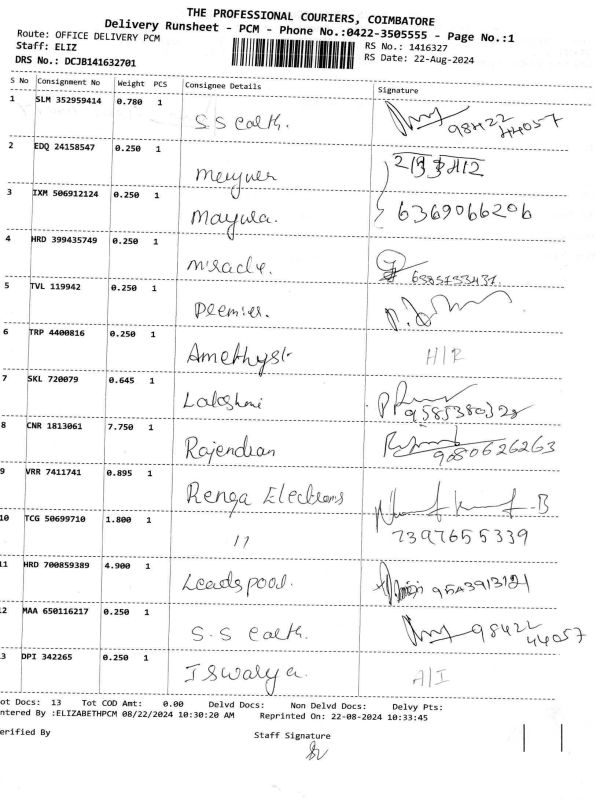 THE PROFESSIONAL COURIERS, COIMBATORE
Delivery Runsheet - PCM - Phone No.:0422-3505555 - Page No.:1
Route: OFFICE DELIVERY PCM
RS No.: 1416327
Staff: ELIZ
RS Date: 22-Aug-2024
DRS No.: DCJB141632701
S No Consignment No Weight PCS Consignee Details Signature
1 SLM 352959414 0.780 1 S.S earth. 98422 44057
2 EDQ 24158547 0.250 1
3 IXM 506912124 0.250 1 Mayura. 6369066206
4 HRD 399435749 0.250 1 Miracle.
5 TVL 119942 0.250 1 Premier.
6 TRP 4400816 0.250 1 Amethyst H/R
7 SKL 720079 0.645 1 Lakshmi 9585380328
8 CNR 1813061 7.750 1 Rajendran 9080626263
9 VRR 7411741 0.895 1 Renga Electricals
10 TCG 50699710 1.800 1 11 7397655339
11 HRD 700859389 4.900 1 Leadspool.
12 MAA 650116217 0.250 1 S.S earth. 98422 44057
13 DPI 342265 0.250 1 Iswarya. A/I
ot Docs: 13 Tot COD Amt: 0.00 Delvd Docs: Non Delvd Docs: Delvy Pts:
ntered By :ELIZABETHPCM 08/22/2024 10:30:20 AM Reprinted On: 22-08-2024 10:33:45
erified By Staff Signature